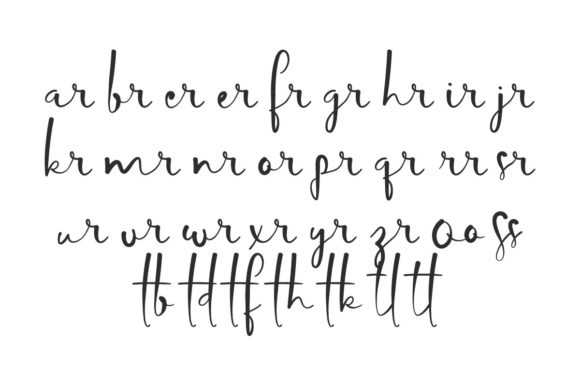 ar br cr er fr gr hr ir jr
kr mr nr or pr qr rr sr
ur vr wr xr yr zr Oo ss
tb td tf th tk tl tt